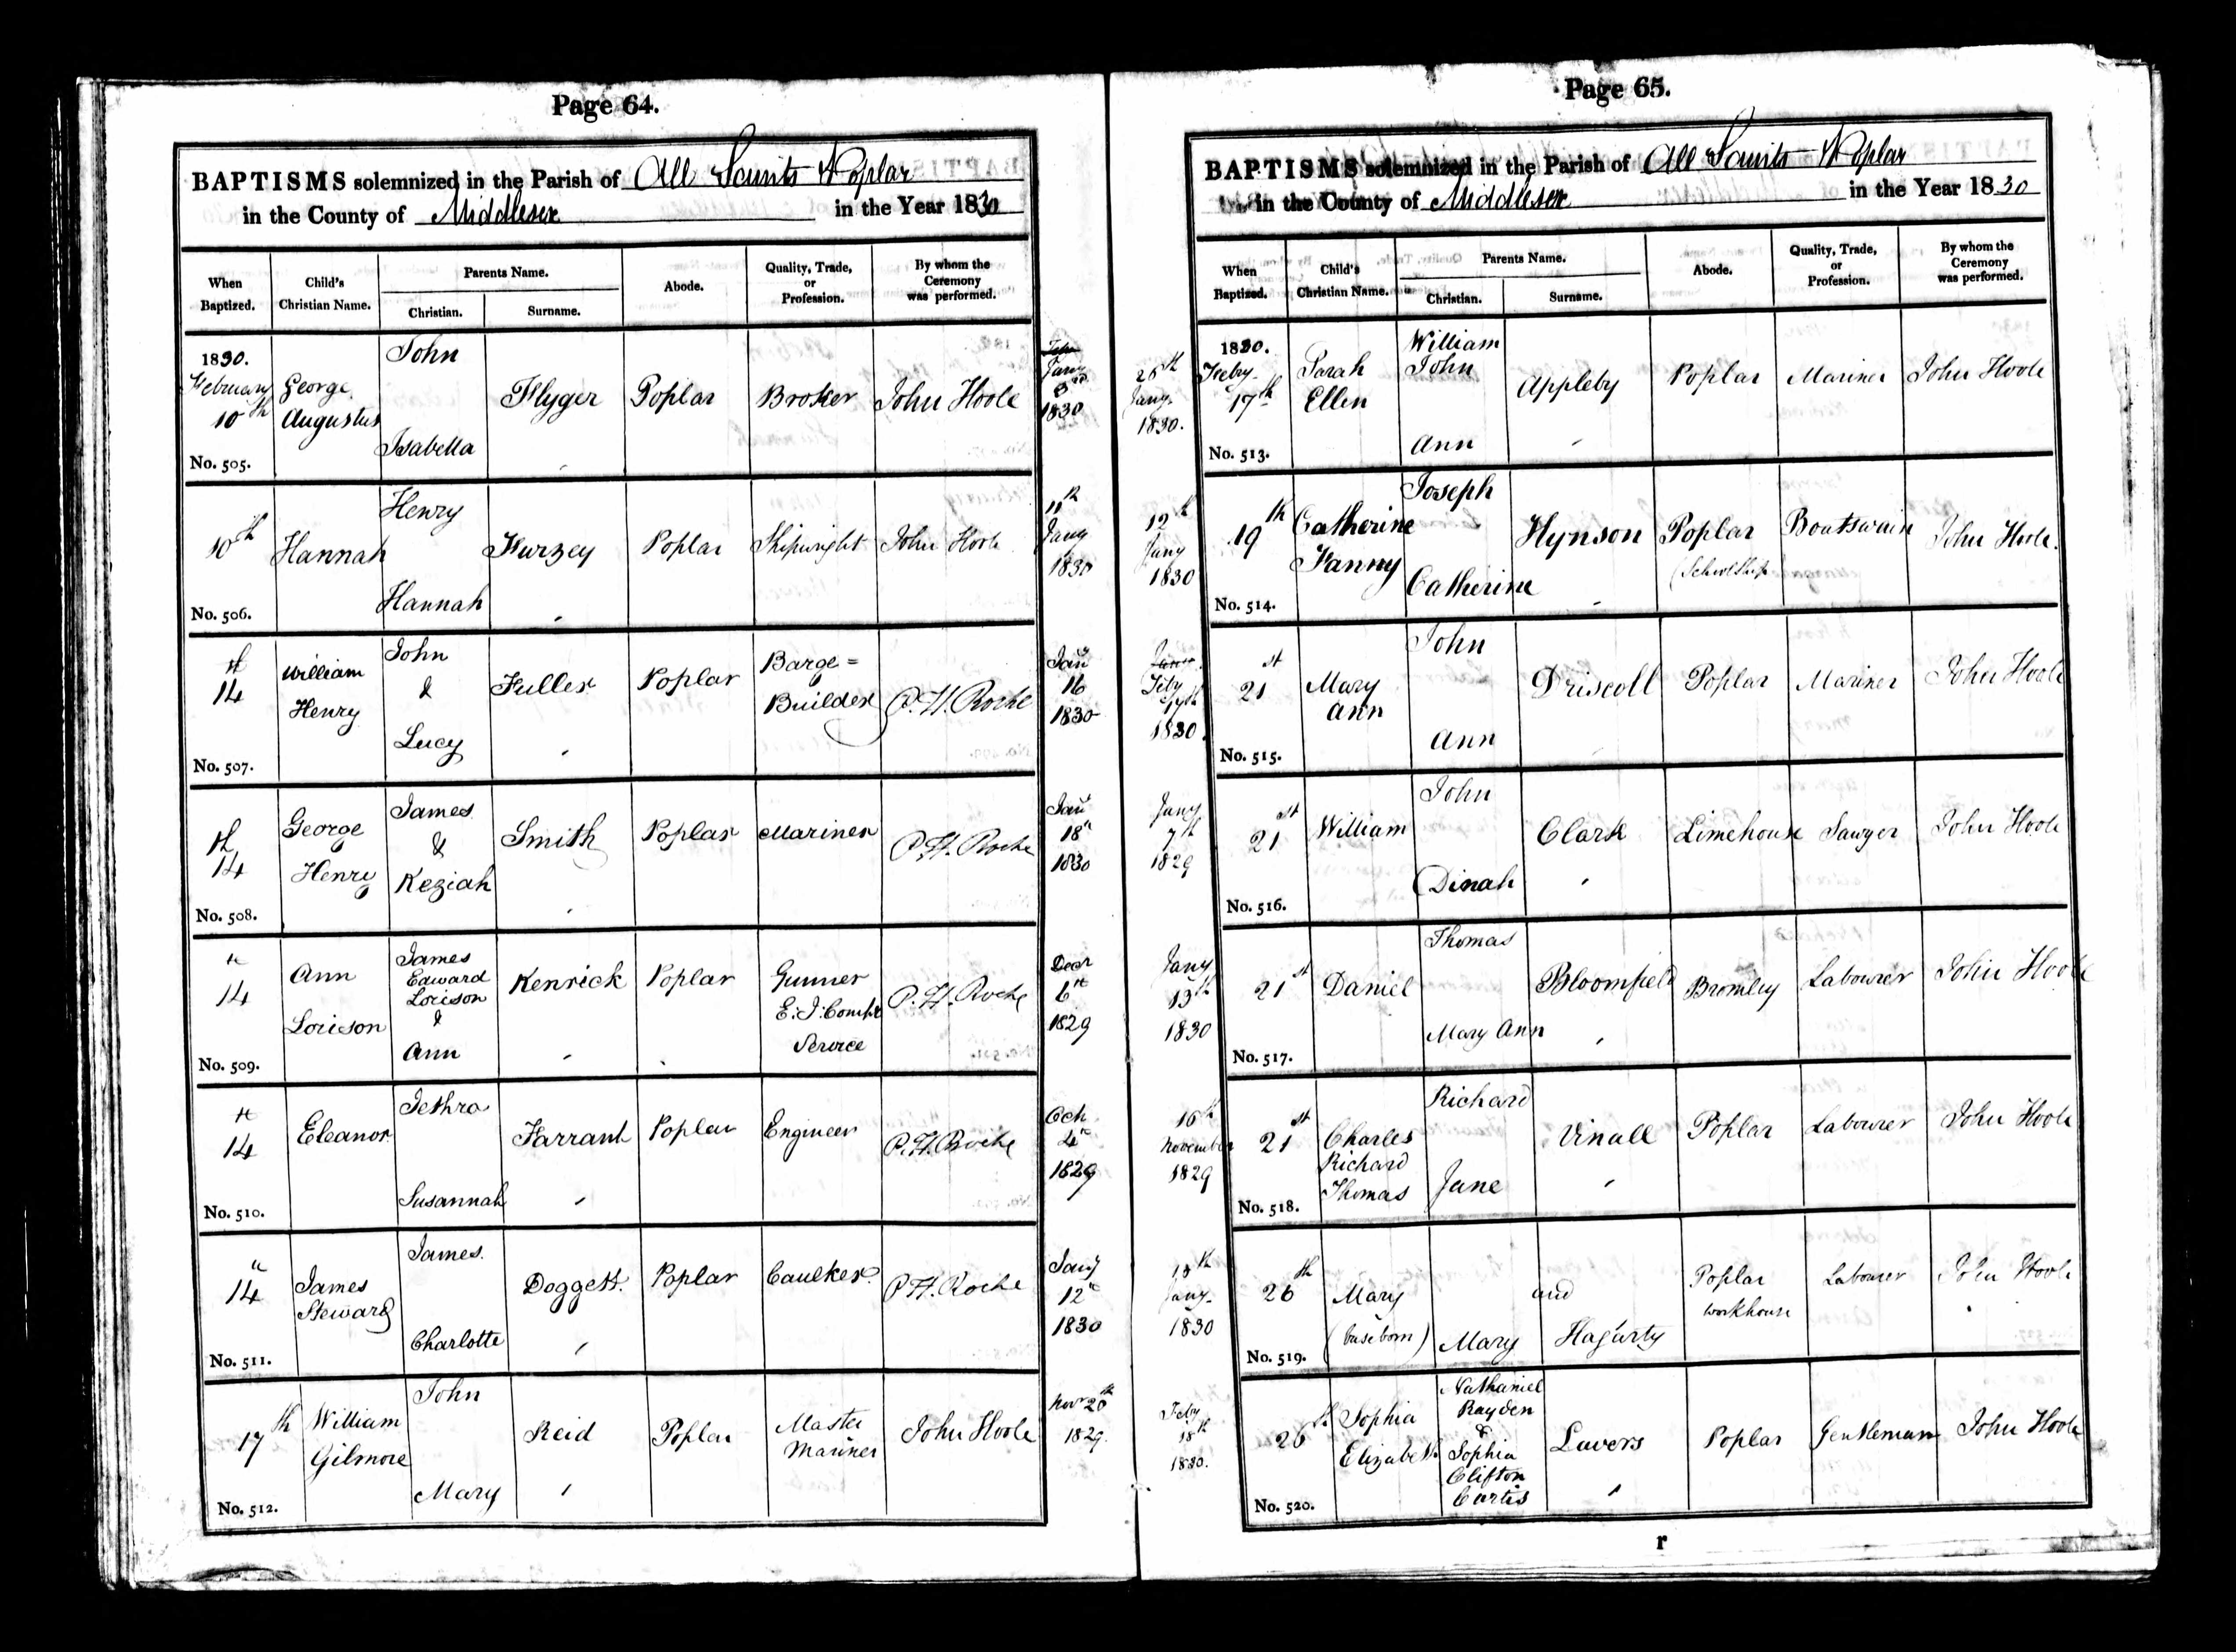 Page 64.
BAPTISMS solemnized in the Parish of All Saints Poplar
in the County of Middlesex in the Year 1830
When Baptized.
Child's Christian Name.
Parents Name.
Christian.
Surname.
Abode.
Quality, Trade, or Profession.
By whom the Ceremony was performed.
1830.
February 10th
No. 505.
George Augustus
John
Isabella
Flyger
Poplar
Broker
John Hoole
Jany
3rd
1830
10th
No. 506.
Hannah
Henry
Hannah
Furzey
Poplar
Shipwright
John Hoole
11th
Jany
1830
th
14
No. 507.
William
Henry
John
&
Lucy
Fuller
Poplar
Barge =
Builder
P. H. Roche
Jany
16
1830
th
14
No. 508.
George
Henry
James
&
Keziah
Smith
Poplar
Mariner
P. H. Roche
Jany
18th
1830
th
14
No. 509.
Ann
Lorison
James
Edward
Lorison
&
Ann
Kenrick
Poplar
Gunner
E. I. Comps
Service
P. H. Roche
Decr
6th
1829
th
14
No. 510.
Eleanor
Jethro
Susannah
Farrant
Poplar
Engineer
P. H. Roche
Oct.
4th
1829
th
14
No. 511.
James
Steward
James
Charlotte
Doggett
Poplar
Caulker
P. H. Roche
Jany
12th
1830
17th
No. 512.
William
Gilmore
John
Mary
Reid
Poplar
Master
Mariner
John Hoole
Novr 20th
1829.
Page 65.
BAPTISMS solemnized in the Parish of All Saints Poplar
in the County of Middlesex in the Year 1830
When Baptized.
Child's Christian Name.
Parents Name.
Christian.
Surname.
Abode.
Quality, Trade, or Profession.
By whom the Ceremony was performed.
26th
Jany.
1830.
1830.
Feby.
17th
No. 513.
Sarah
Ellen
William
John
Ann
Appleby
Poplar
Mariner
John Hoole
12th
Jany
1830
19th
No. 514.
Catherine
Fanny
Joseph
Catherine
Hynson
Poplar
(School Ship
Boatswain
John Hoole.
Feby
17th
1830.
21st
No. 515.
Mary
Ann
John
Ann
Driscoll
Poplar
Mariner
John Hoole
Jany
7th
1829
21st
No. 516.
William
John
Dinah
Clark
Limehouse
Sawyer
John Hoole
Jany
13th
1830
21st
No. 517.
Daniel
Thomas
Mary Ann
Bloomfield
Bromley
Labourer
John Hoole
16th
November
1829
21st
No. 518.
Charles
Richard
Thomas
Richard
Jane
Vinall
Poplar
Labourer
John Hoole
Jany.
1830
26th
No. 519.
Mary
(base born)
and
Mary
Hagarty
Poplar
workhouse
Labourer
John Hoole
Feby
18th
1830.
26th
No. 520.
Sophia
Elizabeth
Nathaniel
Rayden
&
Sophia
Clifton
Curtis
Lavers
Poplar
Gentleman
John Hoole
r